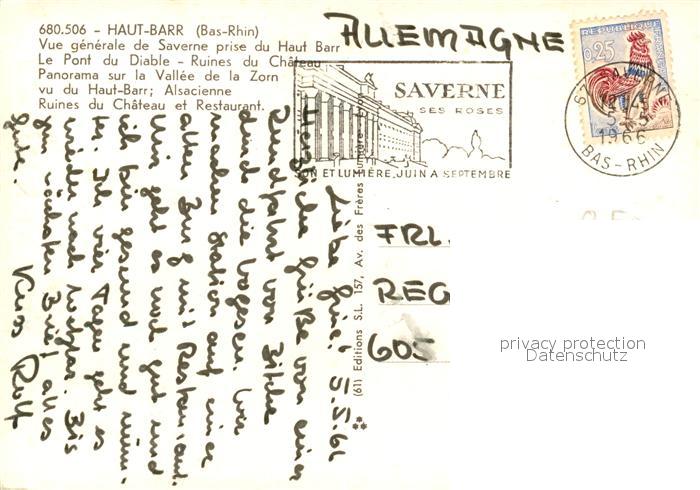 680.506 - HAUT-BARR (Bas-Rhin)
Vue générale de Saverne prise du Haut Barr
Le Pont du Diable - Ruines du Château
Panorama sur la Vallée de la Zorn
vu du Haut-Barr; Alsacienne
Ruines du Château et Restaurant.
ALLEMAGNE
REPUBLIQUE FRANCAISE
0,25
SAVERNE
SES ROSES
SON ET LUMIÈRE, JUIN A SEPTEMBRE
1966
BAS-RHIN
(61) Editions S.L. 157, Av. des Frères Lumière
FRL.
REG
605
privacy protection
Datenschutz
5.5.66
Herzliche Grüße von einer
Rundfahrt von Bitche
durch die Vogesen. Wir
machen Station auf einer
alten Burg mit Restaurant.
Mir geht es noch gut und
ich bin gesund und mun-
ter. In vier Tagen geht es
wieder nach
zum nächsten Brief alles
Gute.
Rolf